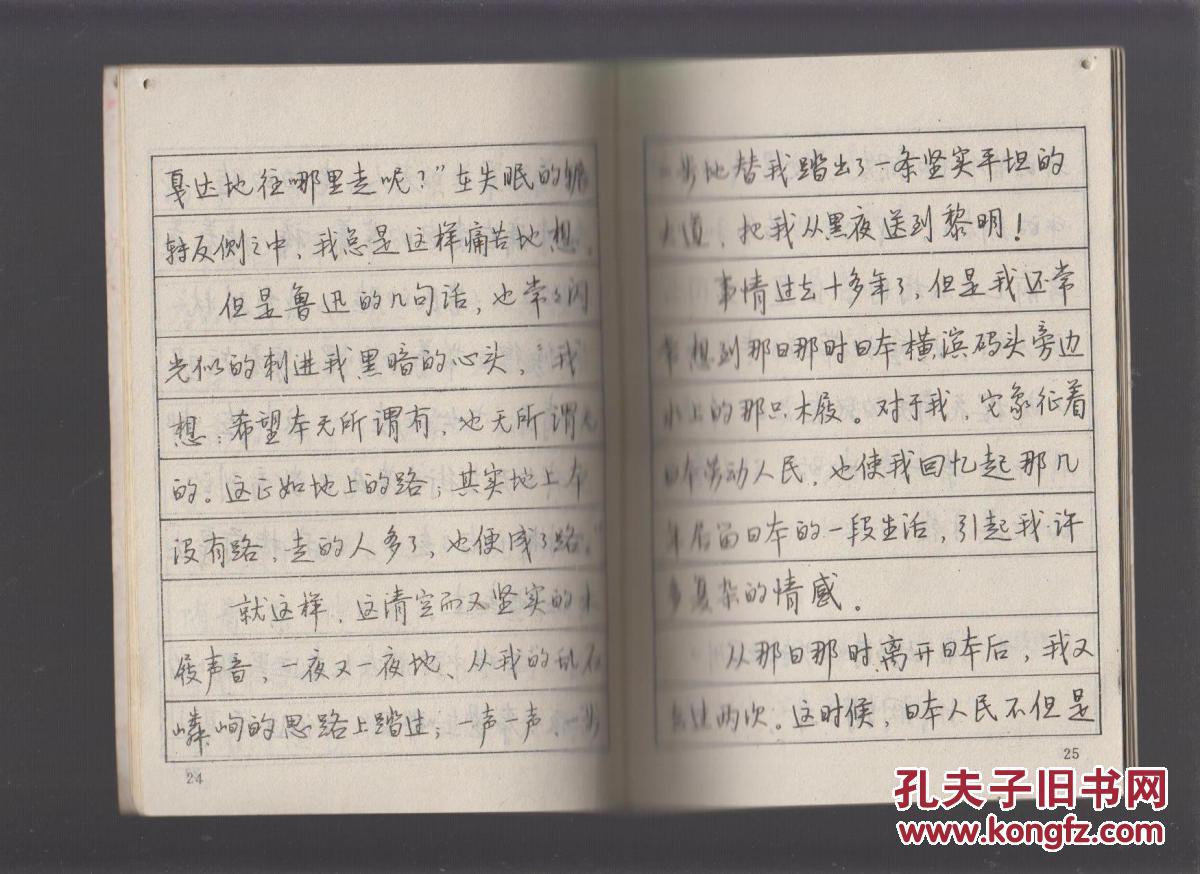 戛达地往哪里走呢？”在失眠的辗
转反侧之中，我总是这样痛苦地想。
但是鲁迅的几句话，也常々闪
光似的刺进我黑暗的心头，“我
想：希望本无所谓有，也无所谓无
的。这正如地上的路；其实地上本
没有路，走的人多了，也便成了路。”
就这样，这清空而又坚实的木
屐声音，一夜又一夜地、从我的乱石
嶙峋的思路上踏过；一声一声、一步
24
一步地替我踏出了一条坚实平坦的
大道，把我从黑夜送到黎明！
事情过去十多年了，但是我还常
常想到那日那时日本横滨码头旁边
水上的那只木屐。对于我，它象征着
日本劳动人民，也使我回忆起那几
年居留日本的一段生活，引起我许
多复杂的情感。
从那日那时离开日本后，我又
去过两次。这时候，日本人民不但是
25
孔夫子旧书网
www.kongfz.com